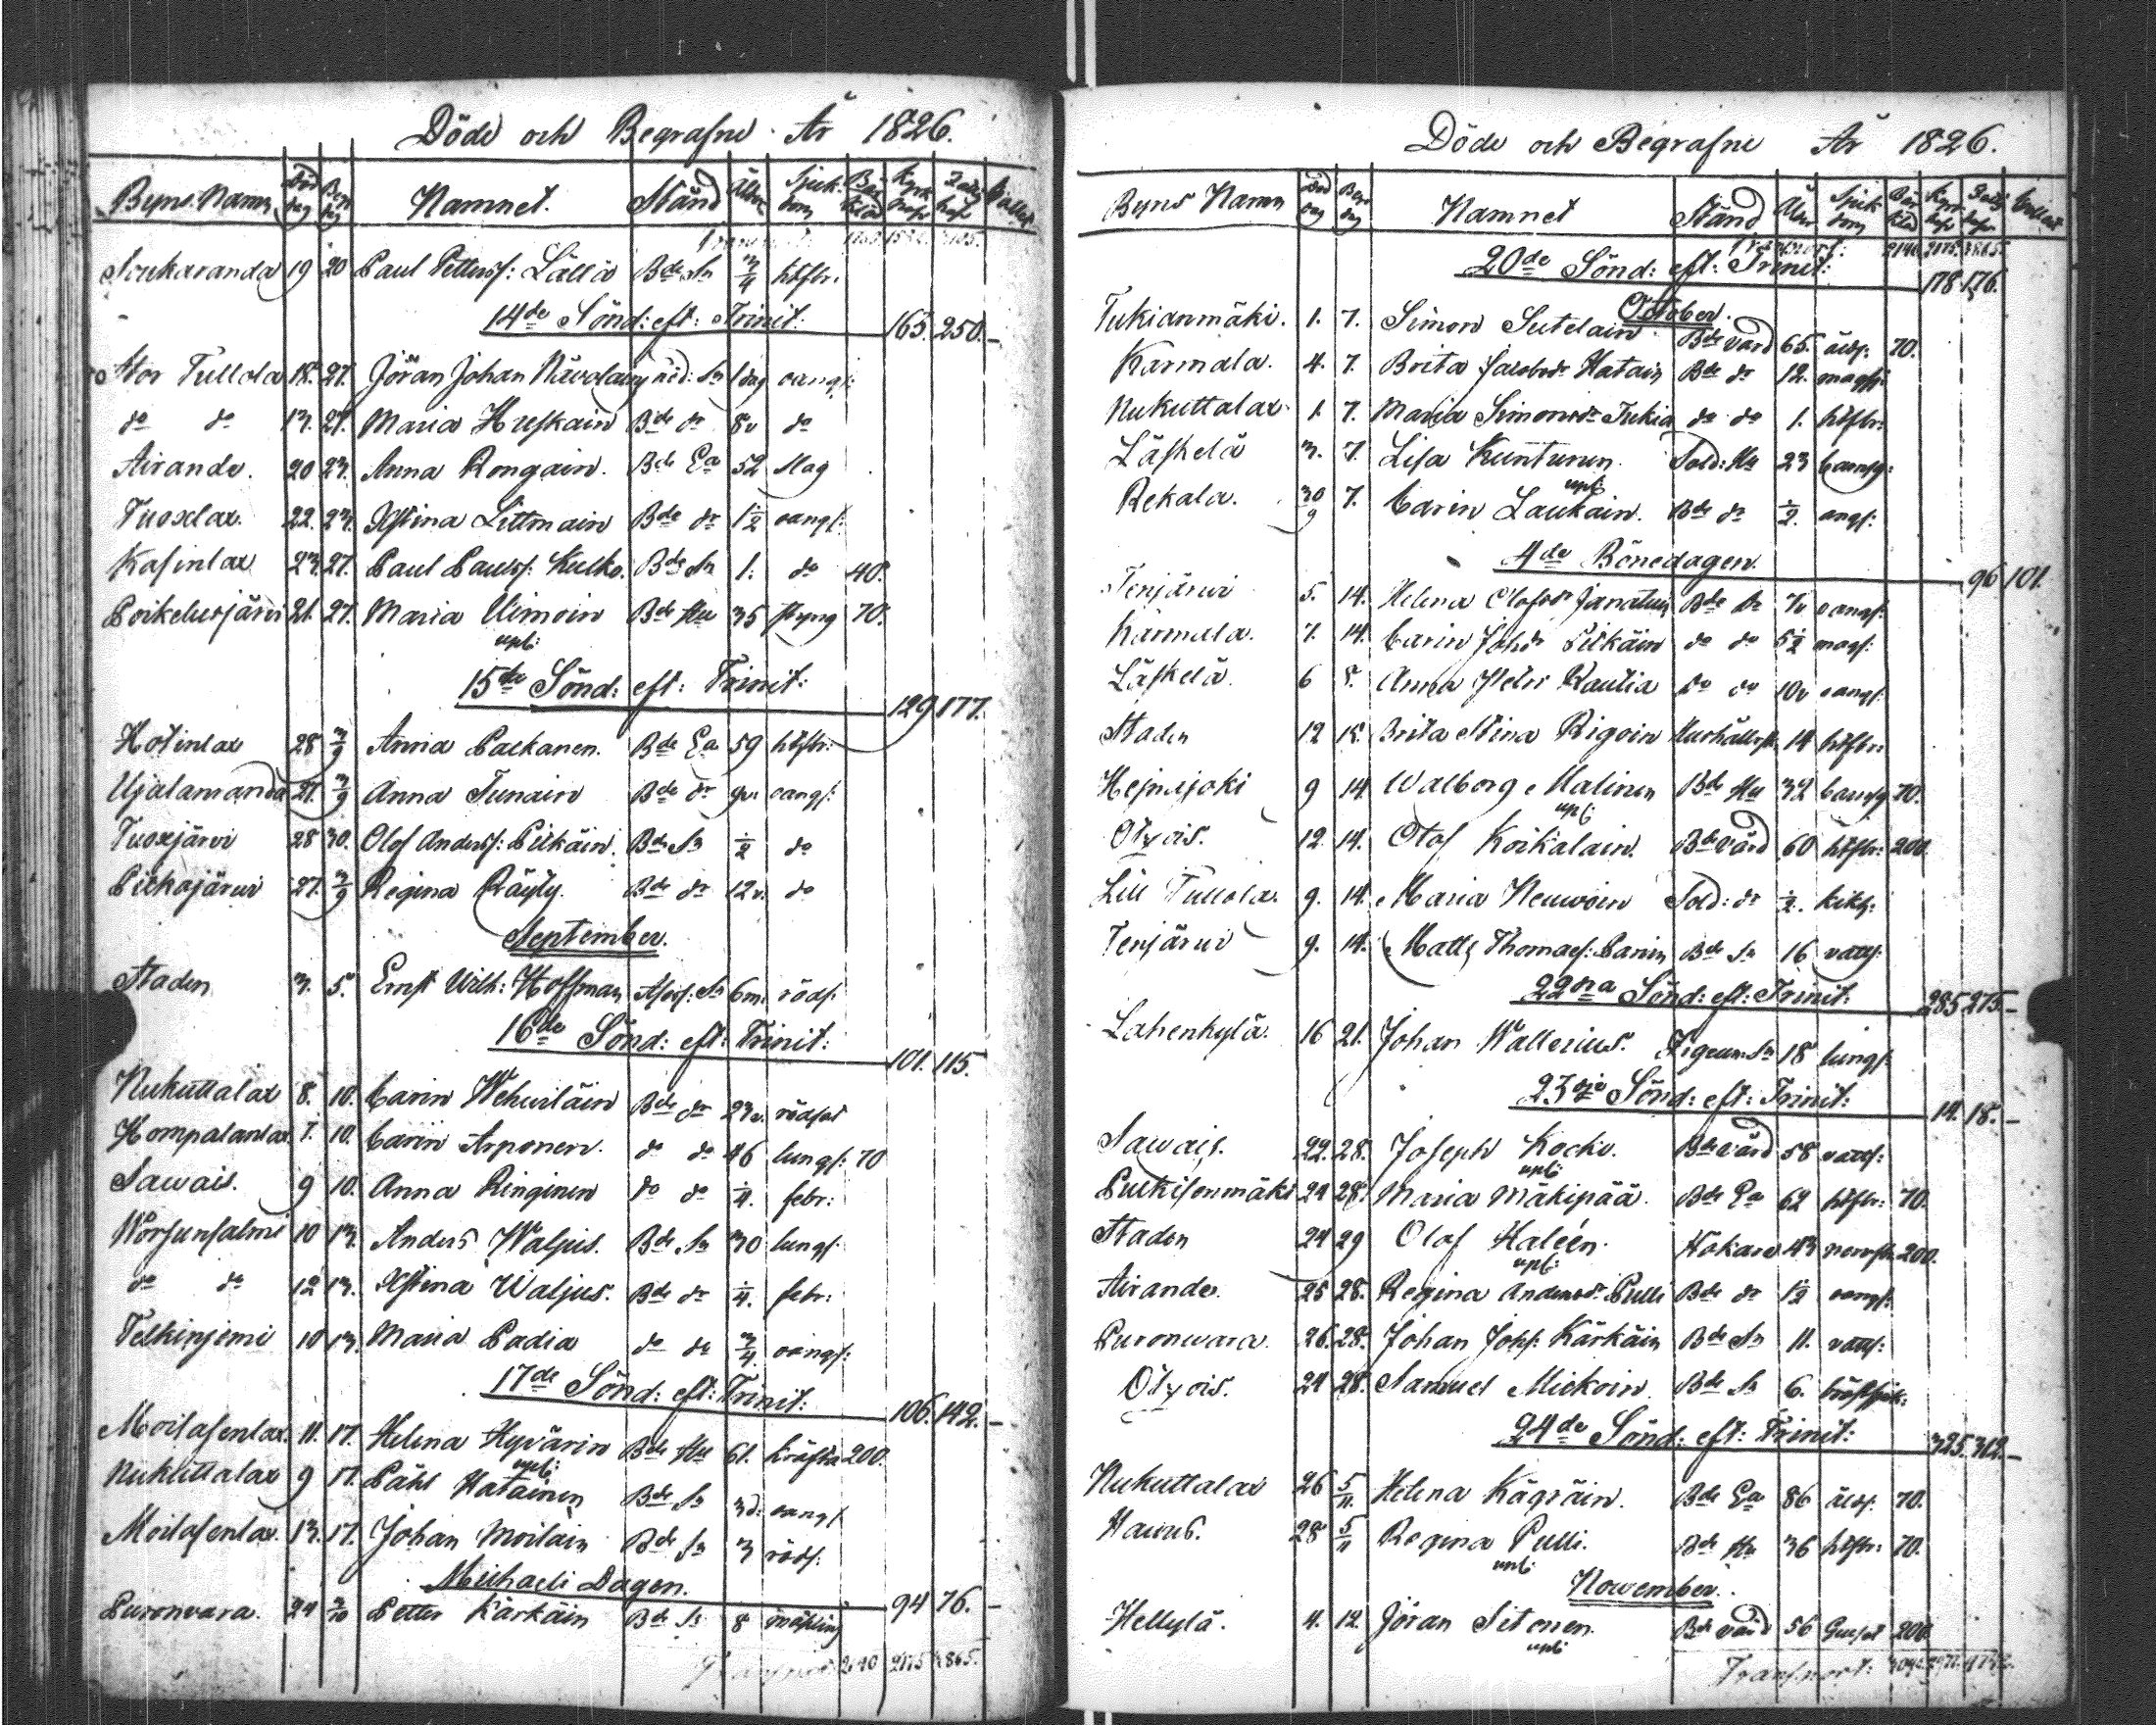 Döde och Begrafne År 1826.
Byns Namn Död dag Begr dag Namnet. Stånd Ålder Sjuk dom Bår kläd Kyrk Collect
Soukaranda 19 20 Paul Pettersf: Lällä Bde Sn 3/4 hetsfbr.
14de Sönd: eft: Trinit: 165. 250.–
Stor Tullola 18. 27. Jöran Johan Sn 1 dag oangf:
do do 13. 27. Maria Huskain Bde dr 8v do
Airando. 20 27. Anna Rongain. Bde Ea 52 slag
Tuoxlax. 22. 27. Xstina Littmain Bde dr 1 1/2 oangf:
Kasinlax 23. 27. Paul Paulsf: Kulko. Bde Sn 1. do 40.
21. 27. Maria Uimoin Bde Hu 35 70.
upb:
15de Sönd: eft: Trinit: 129 177.
Hotinlax 28 3/9 Anna Packanen. Bde Ea 59 hetsfbr:
Ujalamanda 27. 3/9 Anna Tunain Bde dr 9v oangf:
Tuoxjärvi 28 30. Olof Andersf: Pitkäin. Bde Sn 1/2 do
Pitkäjärvi 27. 3/9 Regina Räyty. Bde dr 12v. do
September.
Staden 3. 5. Ernst Wilh: Hoffman Sn 6m. röds:
16de Sönd: eft: Trinit: 101. 115.
Nukuttalax 8. 10. Carin Wehviläin Bde dr rödsot
Hompalanlax. 7. 10. Carin Arponen. do do 46 lungf: 70
Sawais. 9 10. Anna Ringinen do do 1/4. febr:
Worsunsalmi 10 13. Anders Waljus. Bde Sn 30 lungf.
do do 12 13. Xstina Waljus. Bde dr 1/4. febr:
Telkinjemi 10 13. Maria Padia do do 3/4. oangf:
17de Sönd: eft: Trinit: 106. 142.–
Moilasenlax. 11. 17. Helena Hyvärin Bde Hu 61. kräfta 200.
upb:
Nukuttalax 9 17. Påhl Hatainen Bde Sn 3d: oangf
Moilasenlax. 13. 17. Johan Moilain Bde Sn 3 rödf:
Michaeli Dagen. 94 76.–
Puronvara. 24 2/10 Petter Kärkäin Bde Sn 8 mässling
Transport 2140 2175 3865.
Döde och Begrafne År 1826.
Byns Namn Död dag Begr dag Namnet Stånd Ålder Sjuk dom Bår kläd Kyrk Collect
Transport: 2140. 2175. 3865.
20de Sönd: eft: Trinit: 178. 176.
October.
Tukianmäki. 1. 7. Simon Sutelain Bde värd 65. åldf: 70.
Karmala. 4. 7. Brita Jacobsdr Hatain Bde dr 12. magsj:
Nukuttalax 1. 7. Maria Simonsdr Tukia do do 1. hetsfbr:
Läskelä 3. 7. Lisa Kuntunen. Sold: Hu 23 barnsg:
upb:
Rekala. 30/9 7. Carin Laukain. Bde dr 1/2. angf:
4de Bönedagen. 96 101.
Tenjärvi 5. 14. Helena Olofsdr Bde Dr oangf:
Karmala. 7. 14. Carin Johsdr Pitkäin do do 5 1/2 magf:
Läskelä. 6 8. Anna Petri Rautia do do 10v oangf:
Staden 12 15. Brita Stina Rigoin 14 hetsfbr:
Hejnsjoki 9 14 Walborg Malinen Bde Hu 32 barnsg 70.
upb:
Otsois. 12. 14. Olof Koikalain. Bde värd 60 hetsfbr: 200.
Lill Tullola. 9. 14. Maria Neuwoin Sold: dr 1/2. kikh:
Tenjärvi 9. 14. Matts Thomasf: Parin Bde Sn 16 vattf:
22dra Sönd: eft: Trinit: 285 275.–
Lahenkylä. 16 21. Johan Wallerius. Sn 18 lungf:
23dje Sönd: eft: Trinit: 14. 18.–
Sawais. 22. 28. Joseph Kocko. Bde värd 58 vattf:
upb:
Puikisenmäki 24 28. Maria Mäkipää. Bde Ea 62 hetsfbr: 70.
Staden 24 29 Olof Haleén. Hökare 43 nervfb: 200.
upb:
Airando. 25 28. Regina Andersdr Pulli Bde dr 1 1/2 oangf:
Puronwara. 26. 28. Johan Johsf: Kärkäin Bde Sn 11. vattf:
Otsois. 24 28. Samuel Mickoin. Bde Sn 6. bröstsjuk:
24de Sönd: eft: Trinit: 325. 312.–
Nukuttalax 26 5/11 Helena Kägräin. Bde Ea 86 åldf: 70.
Hawus. 28 5/11 Regina Pulli. Bde Hu 36 hetsfbr: 70.
upb:
November.
Hellylä. 4. 12. Jöran Sitonen. Bde värd 56 200.
upb:
Transport: